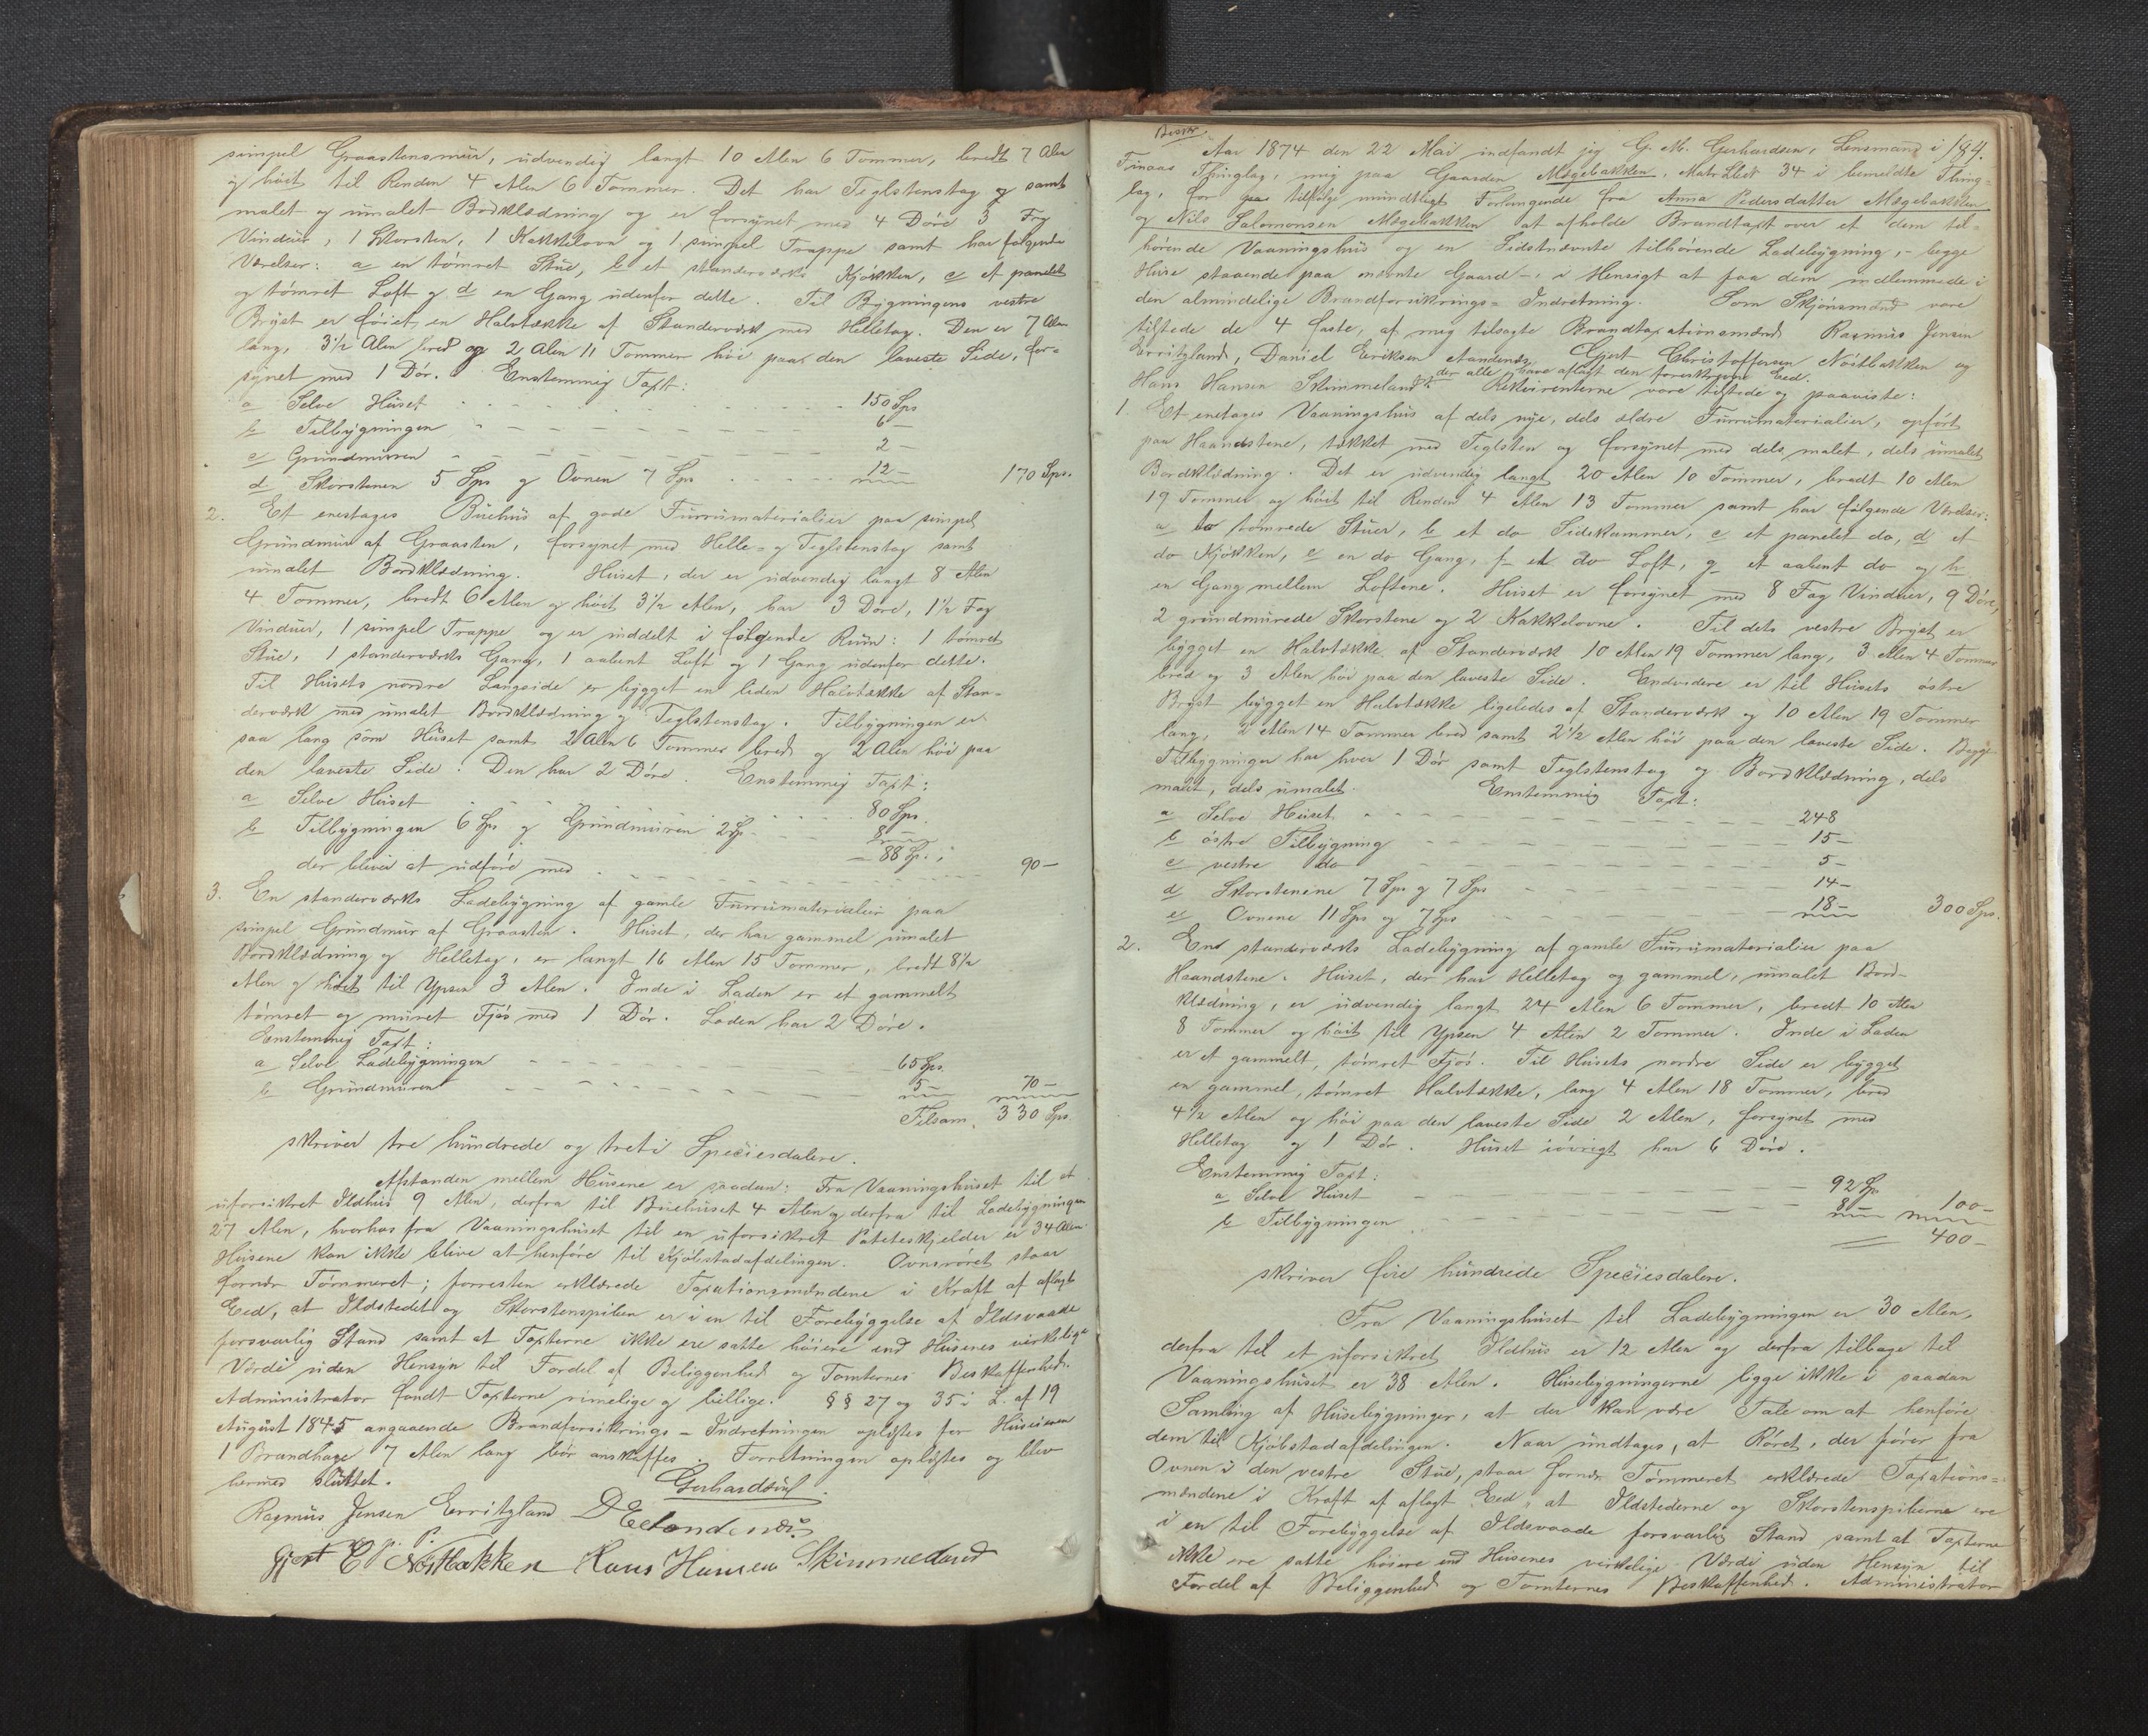 simpel Graastensmuur, udvendig langt 10 Alen 6 Tommer, bredt 7 Alen
og höit til Renden 4 Alen 6 Tommer. Det har Teglstenstag og samt
malet og umalet Bordklædning og er forsynet med 4 Döre 3 Fag
Vinduer, 1 Skorsten, 1 Kakkelovn og 1 simpel Trappe samt har følgende
Værelser: a en tömret Stue, b et standerværks Kjökken, c et panelet
og tömret Loft og d en Gang udenfor dette. Til Bygningens vestre
Bryst er föiet en Halvtække af Standerværk med Helletag. Den er 7 Alen
lang, 3½ Alen bred og 2 Alen 11 Tommer höi paa den laveste Side, for-
synet med 1 Dör. Enstemmig Taxt:
a Selve Huset 150 Sps
b Tilbygningen 6 —
c Grundmuren 2 —
d Skorstenen 5 Sps og Ovnen 7 Sps 12 — 170 Sps.
2. Et enetages Buehus af gode Furrumaterialier paa simpel
Grundmur af Graasten, forsynet med Helle- og Teglstenstag samt
umalet Bordklædning. Huset, der er udvendig langt 8 Alen
4 Tommer, bredt 6 Alen og höit 3½ Alen, har 3 Döre, 1½ Fag
Vinduer, 1 simpel Trappe og er inddelt i følgende Rum: 1 tömret
Stue, 1 standerværks Gang, 1 aabent Loft og 1 Gang udenfor dette.
Til Husets nordre Langside er bygget en liden Halvtække af Stan-
derværk med umalet Bordklædning og Teglstenstag. Tilbygningen er
saa lang som Huset samt 2 Alen 6 Tommer bred og 2 Alen höi paa
den laveste Side. Den har 2 Döre. Enstemmig Taxt:
a Selve Huset 80 Sps.
b Tilbygningen 6 Sps og Grundmuren 2 Sp. 8 —
— 88 Sp.;
der bliver at udföre med 90 —
3. En standerværks Ladebygning af gamle Furrumaterialier paa
simpel Grundmur af Graasten. Huset, der har gammel umalet
Bordklædning og Helletag, er langt 16 Alen 15 Tommer, bredt 8½
Alen og höit til Ypsen 3 Alen. Inde i Laden er et gammelt
tömret og muret Fjös med 1 Dör. Laden har 2 Döre.
Enstemmig Taxt:
a Selve Ladebygningen 65 Sps.
b Grundmuren 5 — 70 —
Tilsam. 330 Sps.
skriver tre hundrede og treti Speciesdalere.
Afstanden mellem Husene er saadan: Fra Vaaningshuset til et
uforsikret Ildhus 9 Alen, derfra til Buehuset 4 Alen og derfra til Ladebygningen
27 Alen, hvorhos fra Vaaningshuset til en uforsikret Poteteskjelder er 34 Alen.
Husene kan ikke blive at henföre til Kjöbstadafdelingen. Ovnsröret staar
fornær Tömmeret; forresten erklærede Taxationsmændene i Kraft af aflagt
Eed, at Ildstedet og Skorstenspiben er i en til Forebyggelse af Ildsvaade
forsvarlig Stand samt at Taxterne ikke ere satte höiere end Husenes virkelige
Værdi uden Hensyn til Fordel af Beliggenhed og Tomternes Beskaffenhed.
Administrator fandt Taxterne rimelige og billige. §§ 27 og 35 i L. af 19
August 1845 angaaende Brandforsikrings-Indretningen oplæstes for Huseieren
1 Brandhage 7 Alen lang bör anskaffes. Forretningen oplæstes og blev
hermed sluttet. Gerhardsen.
Rasmus Jensen Erritzland D E
Gjert C Nöstbakken Hans Hansen Skimmeland
Aar 1874 den 22 Mai indfandt jeg G. M. Gerhardsen, Lensmand i 184.
Finaas Thinglag, mig paa Gaarden Mægebakken, Matr. Löst 34 i bemeldte Thing-
lag, for tilfölge mundtligt Forlangende fra Anna Pedersdatter Mægebakken
og Nils Salomonsen Mægebakken at afholde Brandtaxt over et dem til-
hörende Vaaningshus og en Sidstnævnte tilhörende Ladebygning, – begge
Huse staaende paa nævnte Gaard – i Hensigt at faa dem indlemmede i
den almindelige Brandforsikrings-Indretning. Som Skjönsmænd vare
tilstede de 4 faste, af mig tilsagte Brandtaxationsmænd Rasmus Jensen
Erritzland, Daniel Eeriksen, Gjert Christoffersen Nöstbakken og
der alle have aflagt den foreskrevne Eed.
Hans Hansen Skimmeland. Rekvirenterne vare tilstede og paaviste:
1. Et enetages Vaaningshus af dels nye, dels ældre Furrumaterialier, opfört
paa Haandstene, tækket med Teglsten og forsynet med dels malet, dels umalet
Bordklædning. Det er udvendig langt 20 Alen 10 Tommer, bredt 10 Alen
19 Tommer og höit til Renden 4 Alen 13 Tommer samt har følgende Værelser:
a to tömrede Stuer, b et do Sidekammer, c et panelet do, d et
do Kjökken, e en do Gang, f et do Loft, g et aabent do og h
en Gang mellem Loftene. Huset er forsynet med 8 Fag Vinduer, 9 Döre,
2 grundmurede Skorstene og 2 Kakkelovne. Til dets vestre Bryst er
bygget en Halvtække af Standerværk 10 Alen 19 Tommer lang, 3 Alen 4 Tommer
bred og 3 Alen höi paa den laveste Side. Endvidere er til Husets östre
Bryst bygget en Halvtække ligeledes af Standerværk og 10 Alen 19 Tommer
lang, 2 Alen 14 Tommer bred samt 2½ Alen höi paa den laveste Side. Begge
Tilbygninger har hver 1 Dör samt Teglstenstag og Bordklædning, dels
malet, dels umalet. Enstemmig Taxt:
a Selve Huset 248
b östre Tilbygning 15 —
c vestre do 5 —
d Skorstenene 7 Sps og 7 Sps 14 —
e Ovnene 11 Sps og 7 Sps 18 — 300 Sps.
2. En standerværks Ladebygning af gamle Furrumaterialier paa
Haandstene. Huset, der har Helletag og gammel, umalet Bord-
klædning, er udvendig langt 24 Alen 6 Tommer, bredt 10 Alen
8 Tommer og höit til Ypsen 4 Alen 2 Tommer. Inde i Laden
er et gammelt, tömret Fjös. Til Husets nordre Side er bygget
en gammel, tömret Halvtække, lang 4 Alen 18 Tommer, bred
4½ Alen og höi paa den laveste Side 2 Alen, forsynet med
Helletag og 1 Dör. Huset iövrigt har 6 Döre.
Enstemmig Taxt:
a Selve Huset 92 Sp
b Tilbygningen 8 — 100 —
400 —
skriver fire hundrede Speciesdalere.
Fra Vaaningshuset til Ladebygningen er 30 Alen,
derfra til et uforsikret Ildhus er 12 Alen og derfra tilbage til
Vaaningshuset er 38 Alen. Husebygningerne ligge ikke i saadan
Samling af Husebygninger, at der kan være Tale om at henföre
dem til Kjöbstadafdelingen. Naar undtages, at Röret, der förer fra
Ovnen i den vestre Stue, staar fornær Tömmeret erklærede Taxations-
mændene i Kraft af aflagt Eed, at Ildstederne og Skorstenspiberne ere
i en til Forebyggelse af Ildsvaade forsvarlig Stand samt at Taxterne
ikke ere satte höiere end Husenes virkelige Værdi uden Hensyn til
Fordel af Beliggenhed og Tomternes Beskaffenhed. Administrator